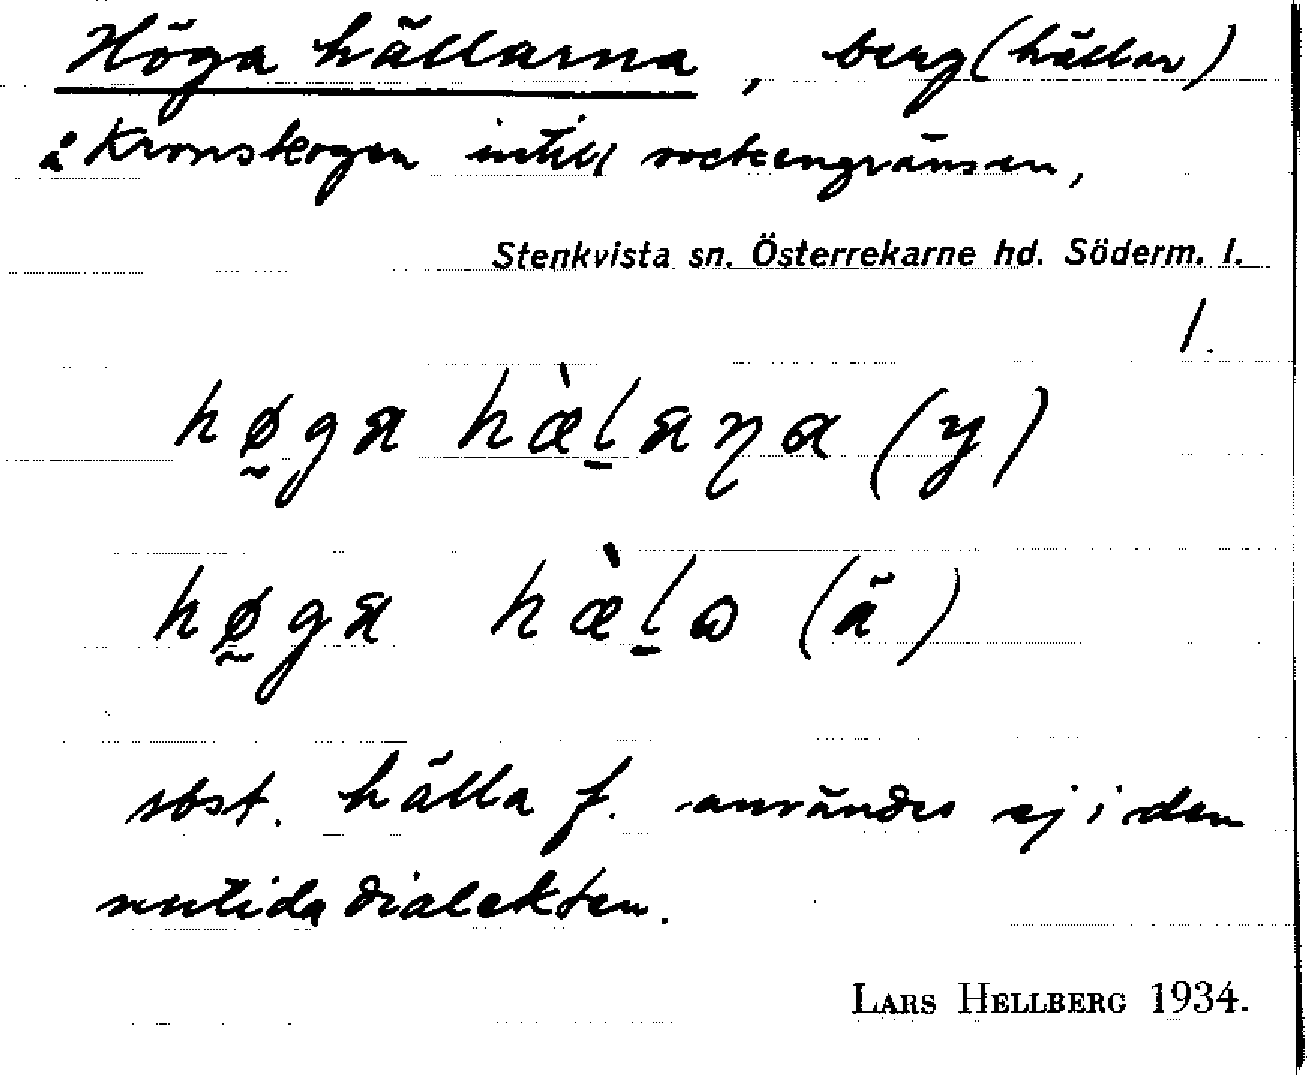 Höga hällarna, berg (hällar)
å Kronskogen intill sockengränsen,
Stenkvista sn. Österrekarne hd. Söderm. l.
1.
hø̰ga hæ̀l̠aɳa (y)
hø̰ga hæ̀l̠ɷ (ä)
sbst. hälla f. användes ej i den
nutida dialekten.
LARS HELLBERG 1934.